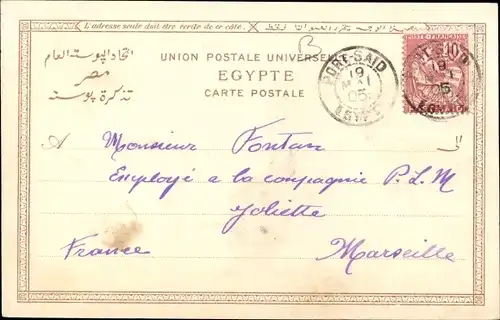 L'adresse seule doit être écrite de ce côté.
B
UNION POSTALE UNIVERSELLE
اتحاد البوستة العام
EGYPTE
مصر
CARTE POSTALE
تذكرة بوستة
PORT-SAID
19
MAI
05
EGYPTE
10
PORT-SAID
19
05
EGYPTE
A Monsieur Fontan
الى
Employé a la compagnie P. L. M
Joliette
France Marseille